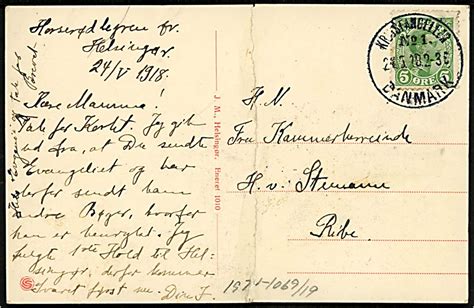 Horserødlejren pr.
Helsingør.
24/V 1918.
Kære Mamma!
Tak for Kortet. Jeg gik
ud fra, at Du sendte
Evangeliet og har
derfor sendt ham
andre Bøger, hvorfor
han er beurylat. Jeg
fulgte 1ste Hold til Hel-
singør, derfor kommer
Svaret først nu. Din F.
J. M., Helsingør. Eneret 1010
No 1
5 ØRE 5
DANMARK
H. V.
Fru Kammerherreinde
H. v. Stemann
Ribe.
1921-1069/19